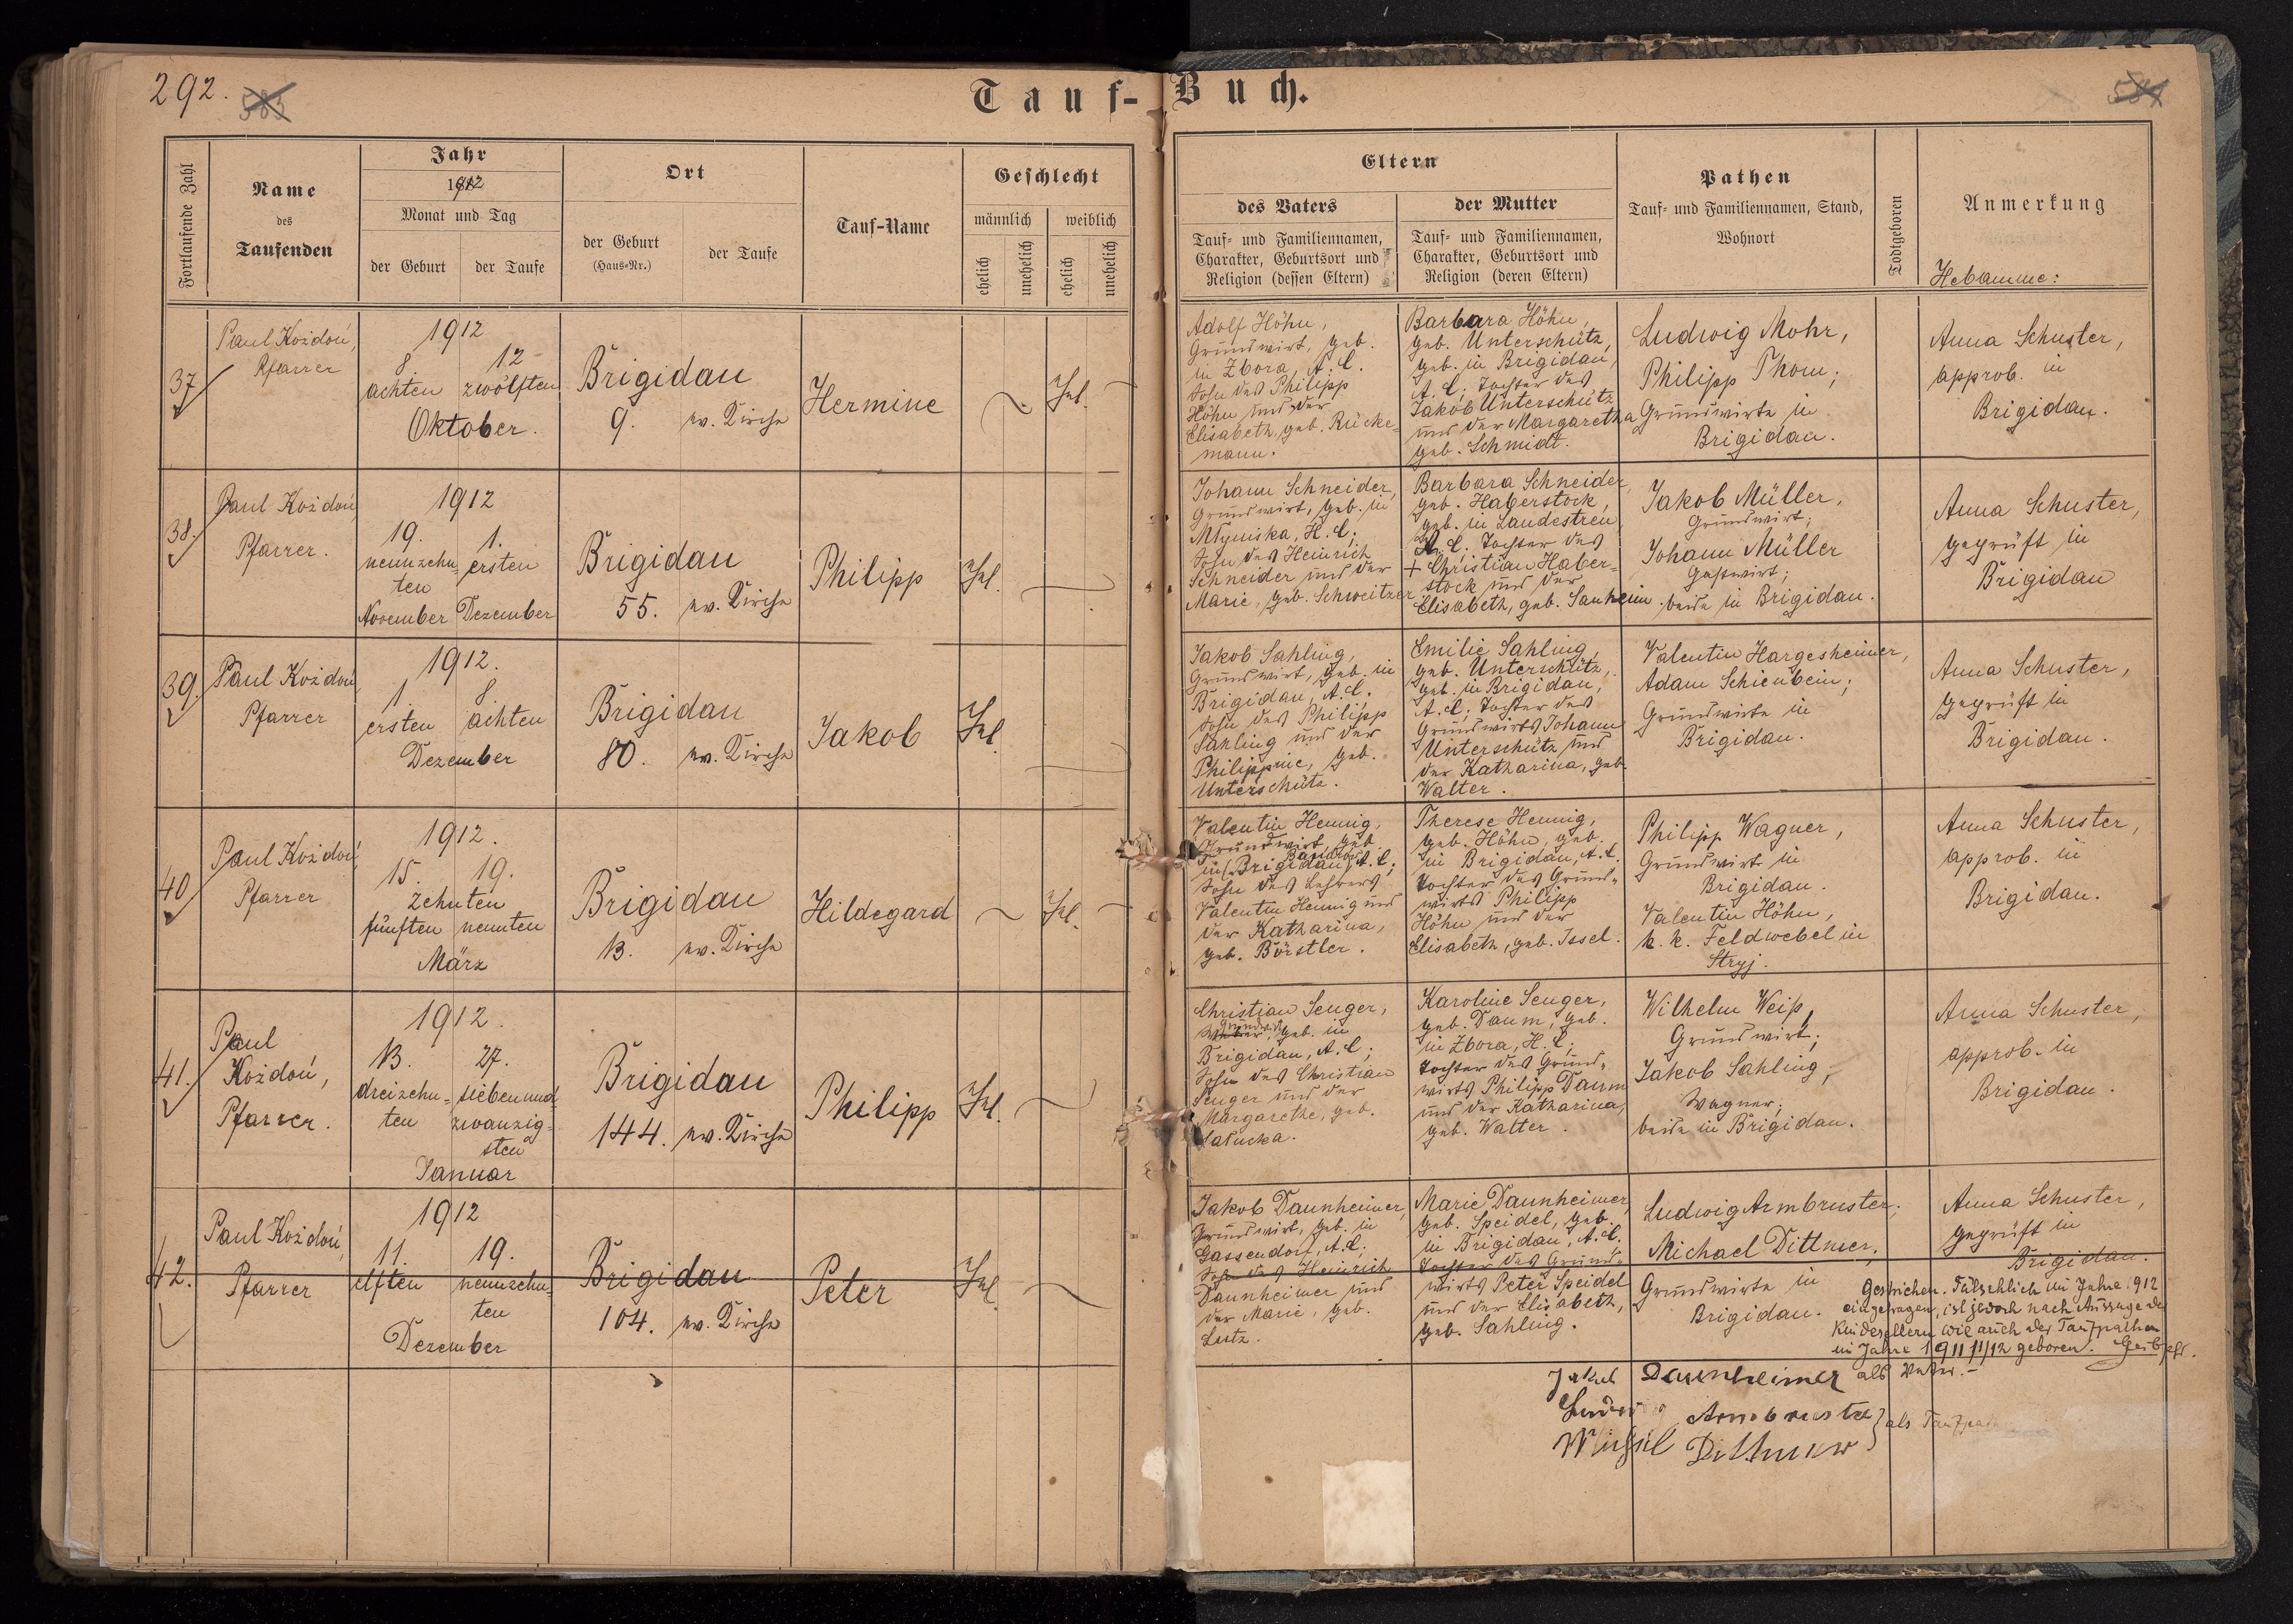 292.
Tauf-Buch.
Fortlaufende Zahl
Name
des
Taufenden
Jahr
1912
Monat und Tag
der Geburt
der Taufe
Ort
der Geburt
(Haus=Nr.)
der Taufe
Tauf-Name
Geschlecht
männlich
weiblich
ehelich
unehelich
ehelich
unehelich
Eltern
des Vaters
Tauf= und Familiennamen,
Charakter, Geburtsort und
Religion (dessen Eltern)
der Mutter
Tauf= und Familiennamen,
Charakter, Geburtsort und
Religion (deren Eltern)
Pathen
Tauf= und Familiennamen, Stand,
Wohnort
Todtgeboren
Anmerkung
Hebamme:
37
Paul Kożdoń,
Pfarrer
1912
8 12
achten zwölften
Oktober.
Brigidau
9. ev. Kirche
Hermine
Ehl.
Adolf Höhn,
Grundwirt, geb.
in Zbora, A.C.
Sohn des Philipp
Höhn und der
Elisabeth, geb. Rücke=
mann.
Barbara Höhn,
geb. Unterschütz,
geb. in Brigidau,
A.C; Tochter des
Jakob Unterschütz
und der Margaretha
geb. Schmidt.
Ludwig Mohr,
Philipp Thom;
Grundwirte in
Brigidau.
Anna Schuster,
approb. in
Brigidau.
38.
Paul Kożdoń,
Pfarrer.
1912
19. 1.
neunzehn= ersten
ten
November Dezember
Brigidau
55. ev. Kirche
Philipp
Ehl.
Johann Schneider,
Grundwirt, geb. in
Mlyniska, H.C;
Sohn des Heinrich
Schneider und der
Marie, geb. Schweitzer
Barbara Schneider,
geb. Haberstock,
geb. in Landestreu
A.C; Tochter des
+ Christian Haber=
stock und der
Elisabeth, geb. Sauheim.
Jakob Müller,
Grundwirt;
Johann Müller
Gastwirt;
beide in Brigidau.
Anna Schuster,
geprüft in
Brigidau
39.
Paul Kożdoń,
Pfarrer
1912.
1. 8.
ersten achten
Dezember
Brigidau
80. ev. Kirche
Jakob
Ehl.
Jakob Sahling,
Grundwirt, geb. in
Brigidau, A.C.
Sohn des Philipp
Sahling und der
Philippine, geb.
Unterschütz.
Emilie Sahling,
geb. Unterschütz,
geb. in Brigidau,
A.C; Tochter des
Grundwirts Johann
Unterschütz und
der Katharina, geb.
Walter.
Valentin Hargesheimer,
Adam Schienbein;
Grundwirte in
Brigidau.
Anna Schuster,
geprüft in
Brigidau.
40
Paul Kożdoń,
Pfarrer
1912.
15. 19.
zehnten
fünften neunten
März
Brigidau
13. ev. Kirche
Hildegard
Ehl.
Valentin Hennig,
Grundwirt, geb.
in Brigidau, A.C;
Sohn des Lehrers
Valentin Hennig und
der Katharina,
geb. Börstler.
Therese Hennig,
geb. Höhn, geb.
in Brigidau, A.C.
Tochter des Grund=
wirts Philipp
Höhn und der
Elisabeth, geb. Issel.
Philipp Wagner,
Grundwirt in
Brigidau.
Valentin Höhn,
k. k. Feldwebel in
Stryj.
Anna Schuster,
approb. in
Brigidau.
41.
Paul
Kożdoń,
Pfarrer.
1912.
13. 27.
dreizehn= siebenund=
ten zwanzig=
sten
Januar
Brigidau
144. ev. Kirche
Philipp
Ehl.
Christian Senger,
Grundwirt
geb. in
Brigidau, A.C;
Sohn des Christian
Senger und der
Margarethe, geb.
Karoline Senger,
geb. Daum, geb.
in Zbora, H.C;
Tochter des Grund=
wirts Philipp Daum
und der Katharina,
geb. Walter.
Wilhelm Weiß,
Grundwirt;
Jakob Sahling,
Wagner;
beide in Brigidau.
Anna Schuster,
approb. in
Brigidau.
42.
Paul Kożdoń,
Pfarrer
1912
11. 19.
elften neunzehn=
ten
Dezember
Brigidau
104. ev. Kirche
Peter
Ehl.
Jakob Daunheimer,
Grundwirt, geb. in
Gassendorf, A.C;
Sohn des Heinrich
Daunheimer und
der Marie, geb.
Lutz.
Marie Daunheimer,
geb. Speidel, geb.
in Brigidau, A.C.
Tochter des Grund=
wirts Peter Speidel
und der Elisabeth,
geb. Sahling.
Ludwig Armbruster,
Michael Dittmer,
Grundwirte in
Brigidau.
Anna Schuster,
geprüft in
Brigidau.
Gestrichen. Fälschlich im Jahre 1912
eingetragen, ist jedoch nach Aussage der
Kindeseltern wie auch der Taufpathen
im Jahre 1911 11/12 geboren.
Jakob Daunheimer als Vater.
Ludwig Armbruster
Dittmer
als